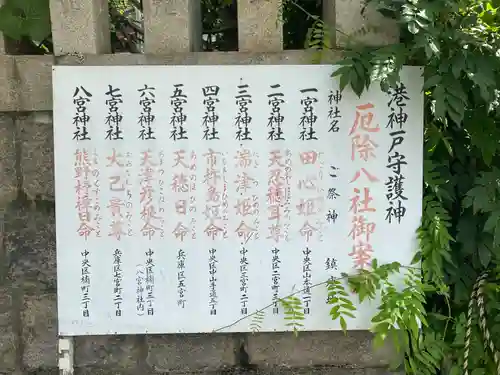 港神戸守護神
厄除八社御
神社名 ご祭神 鎮
一宮神社 田心姫命 中央区山本通一丁目
二宮神社 天忍穂耳尊 中央区二宮町
三宮神社 湍津姫命 中央区三宮町二丁目
四宮神社 市杵島姫命 中央区中山手通五丁目
五宮神社 天穂日命 兵庫区五宮町
六宮神社 天津彦根命 中央区楠町三丁目
（八宮神社内）
七宮神社 大己貴尊 兵庫区七宮町二丁目
八宮神社 熊野杼樟日命 中央区楠町三丁目